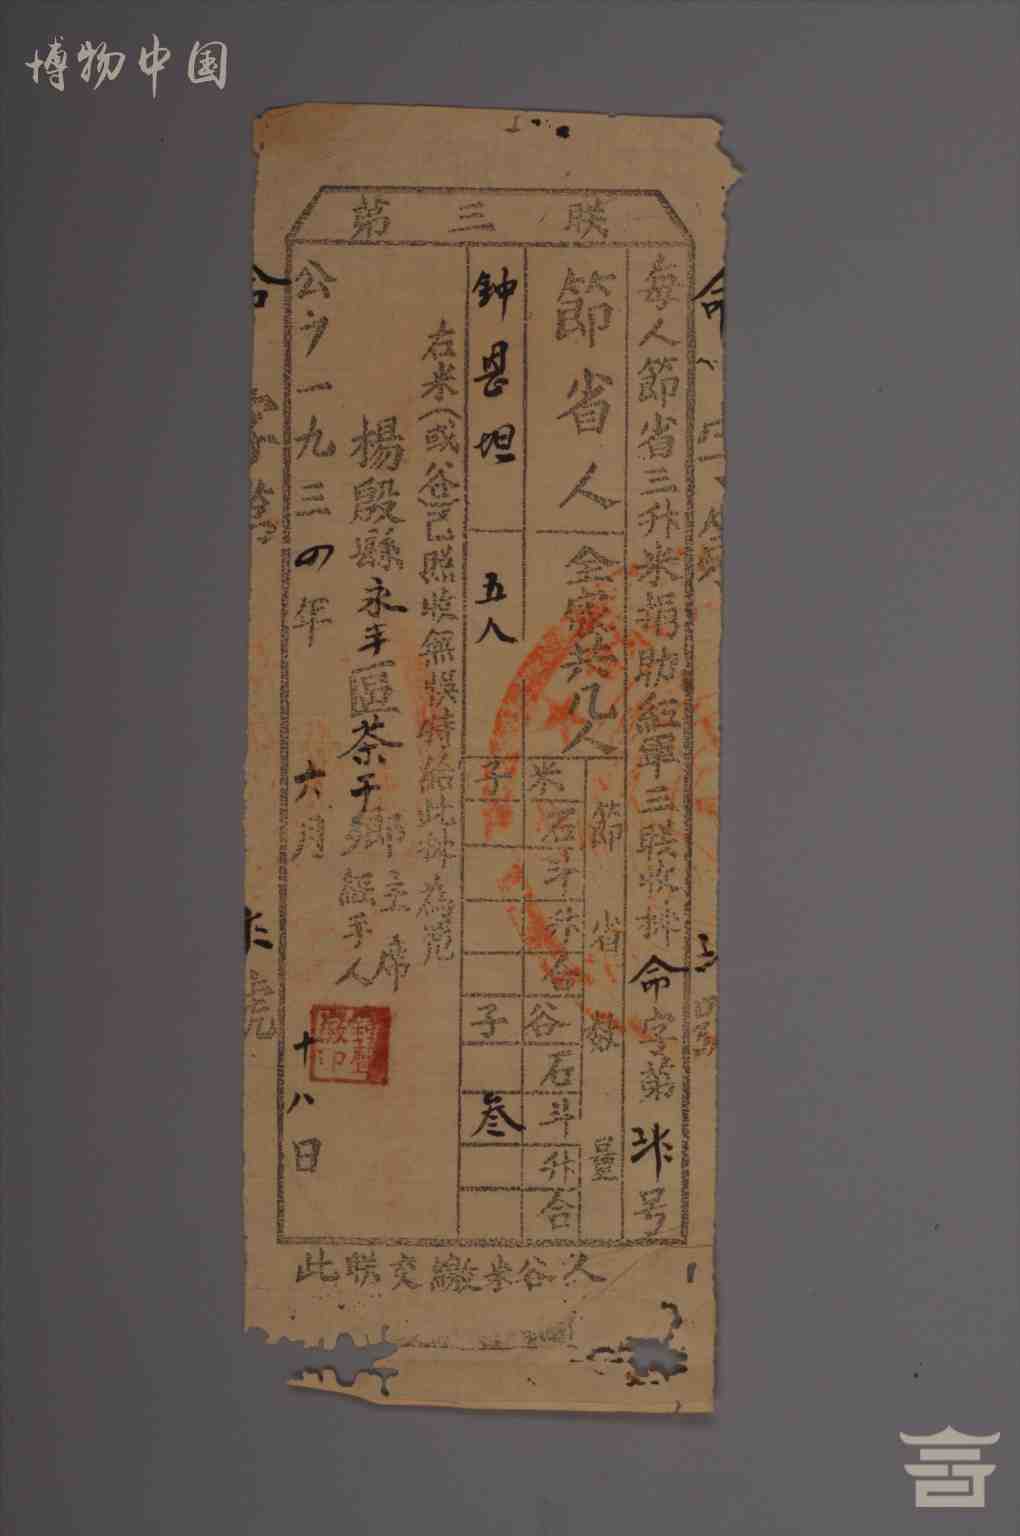 博物中国
第三联
每人節省三升米捐助紅軍三联收拝命字第 号
節省人
全家共几人
節省数量
米 石斗升合
谷 石斗升合
鈡思坦
五人
子
子 叁
右米(或谷)已照收無悞特給此拝為凭
楊殷縣永丰區茶干鄉主席
經手人
公 一九三四年六月十八日
此联交繳米谷人